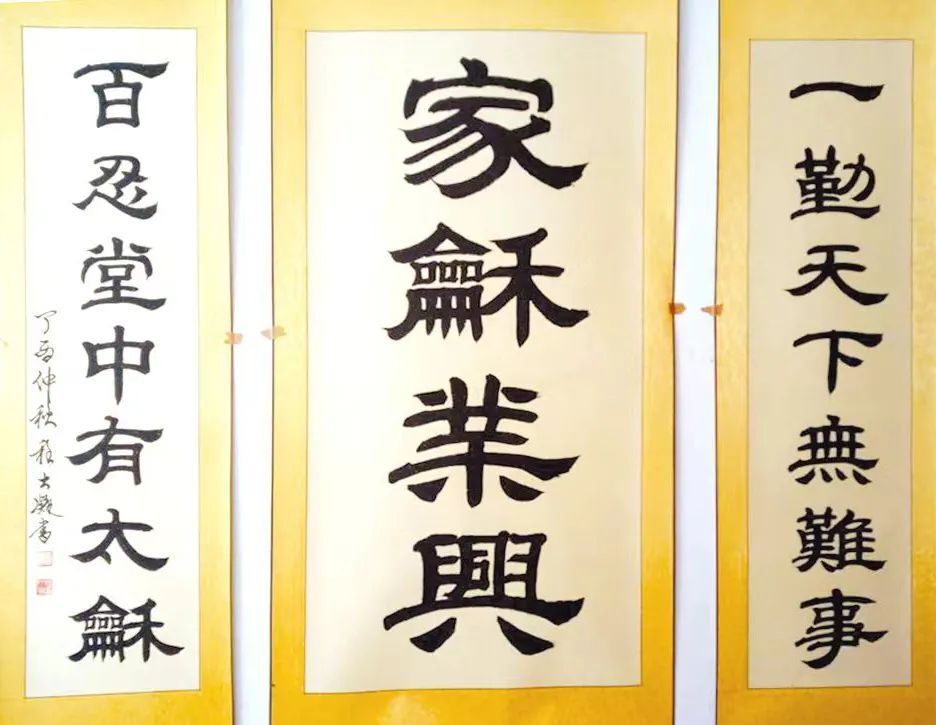 一勤天下無難事
家龢業興
百忍堂中有太龢
丁酉仲秋程大凝書